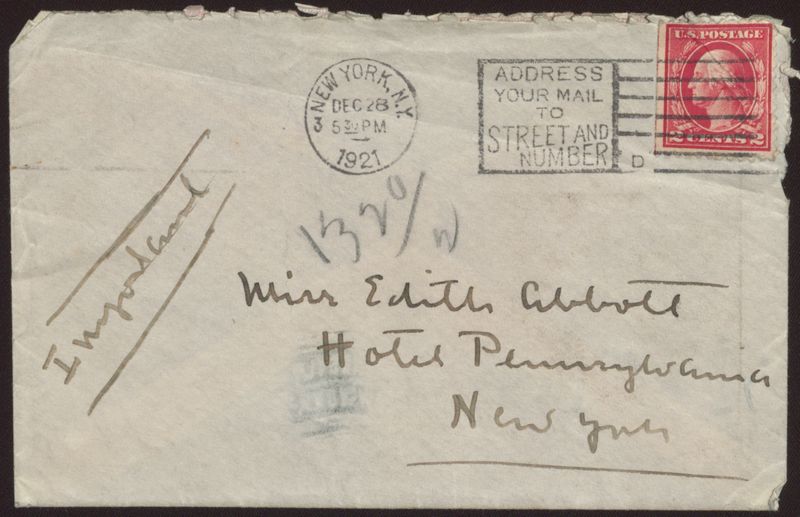 U.S. POSTAGE
2 CENTS 2
NEW YORK, N.Y.
3
DEC 28
5 30 PM
1921
ADDRESS
YOUR MAIL
TO
STREET AND
NUMBER
D
Important
Miss Edith Abbott
Hotel Pennsylvania
New York